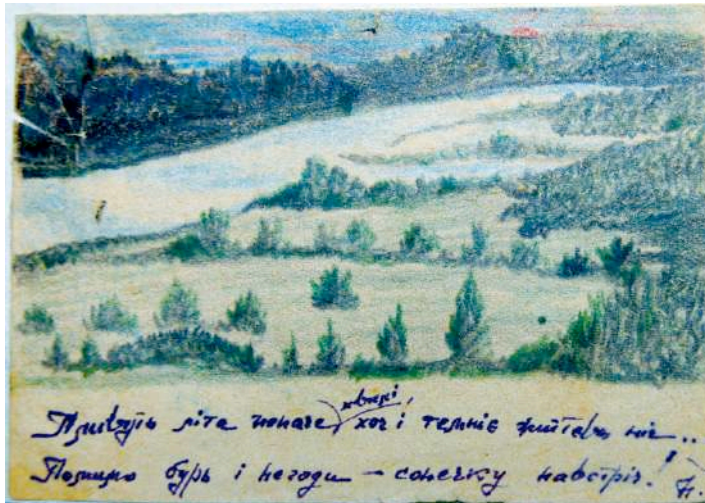 Пливуть літа неначе хвилі, хоч і темніє життєва ніч..
Помимо бурь і негоди – сонечку навстріч!